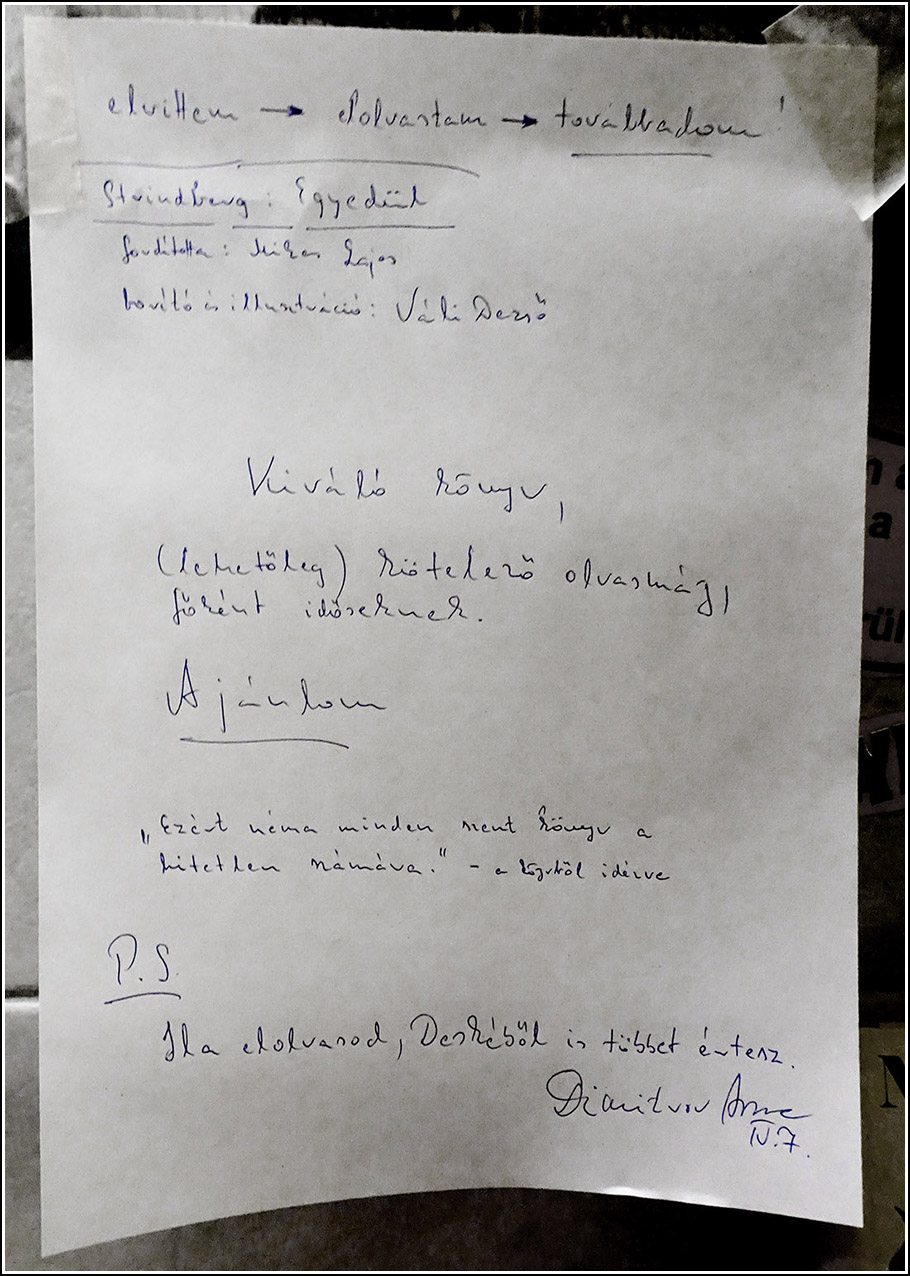 elvittem → elolvastam → továbbadom!
Strindberg: Egyedül
fordította: Mikes Lajos
borító és illusztráció: Váli Dezső
Kiváló könyv,
(lehetőleg) kötelező olvasmány,
főként időseknek.
Ajánlom
„Ezért néma minden szent könyv a
hitetlen számára." - a könyvből idézve
P.S.
Ha elolvasod, Dezkéből is többet értesz.
Dimitrov Anna
IV.7.